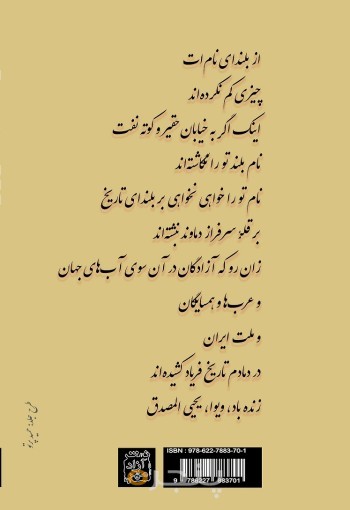 از بلندای نام‌ات
چیزی کم نکرده‌اند
اینک اگر به خیابان حقیر و کوته نفت
نام بلند تو را نگاشته‌اند
نام تو را خواهی نخواهی بر بلندای تاریخ
بر قلهٔ سرفراز دماوند نبشته‌اند
زان رو که آزادگان در آن سوی آب‌های جهان
و عرب‌ها و همسایگان
و ملت ایران
در دمادم تاریخ فریاد کشیده‌اند
زنده باد، ویوا، یحیی المصدق
طرح جلد: حمید پرتو
ISBN : 978-622-7883-70-1
9 786227 883701